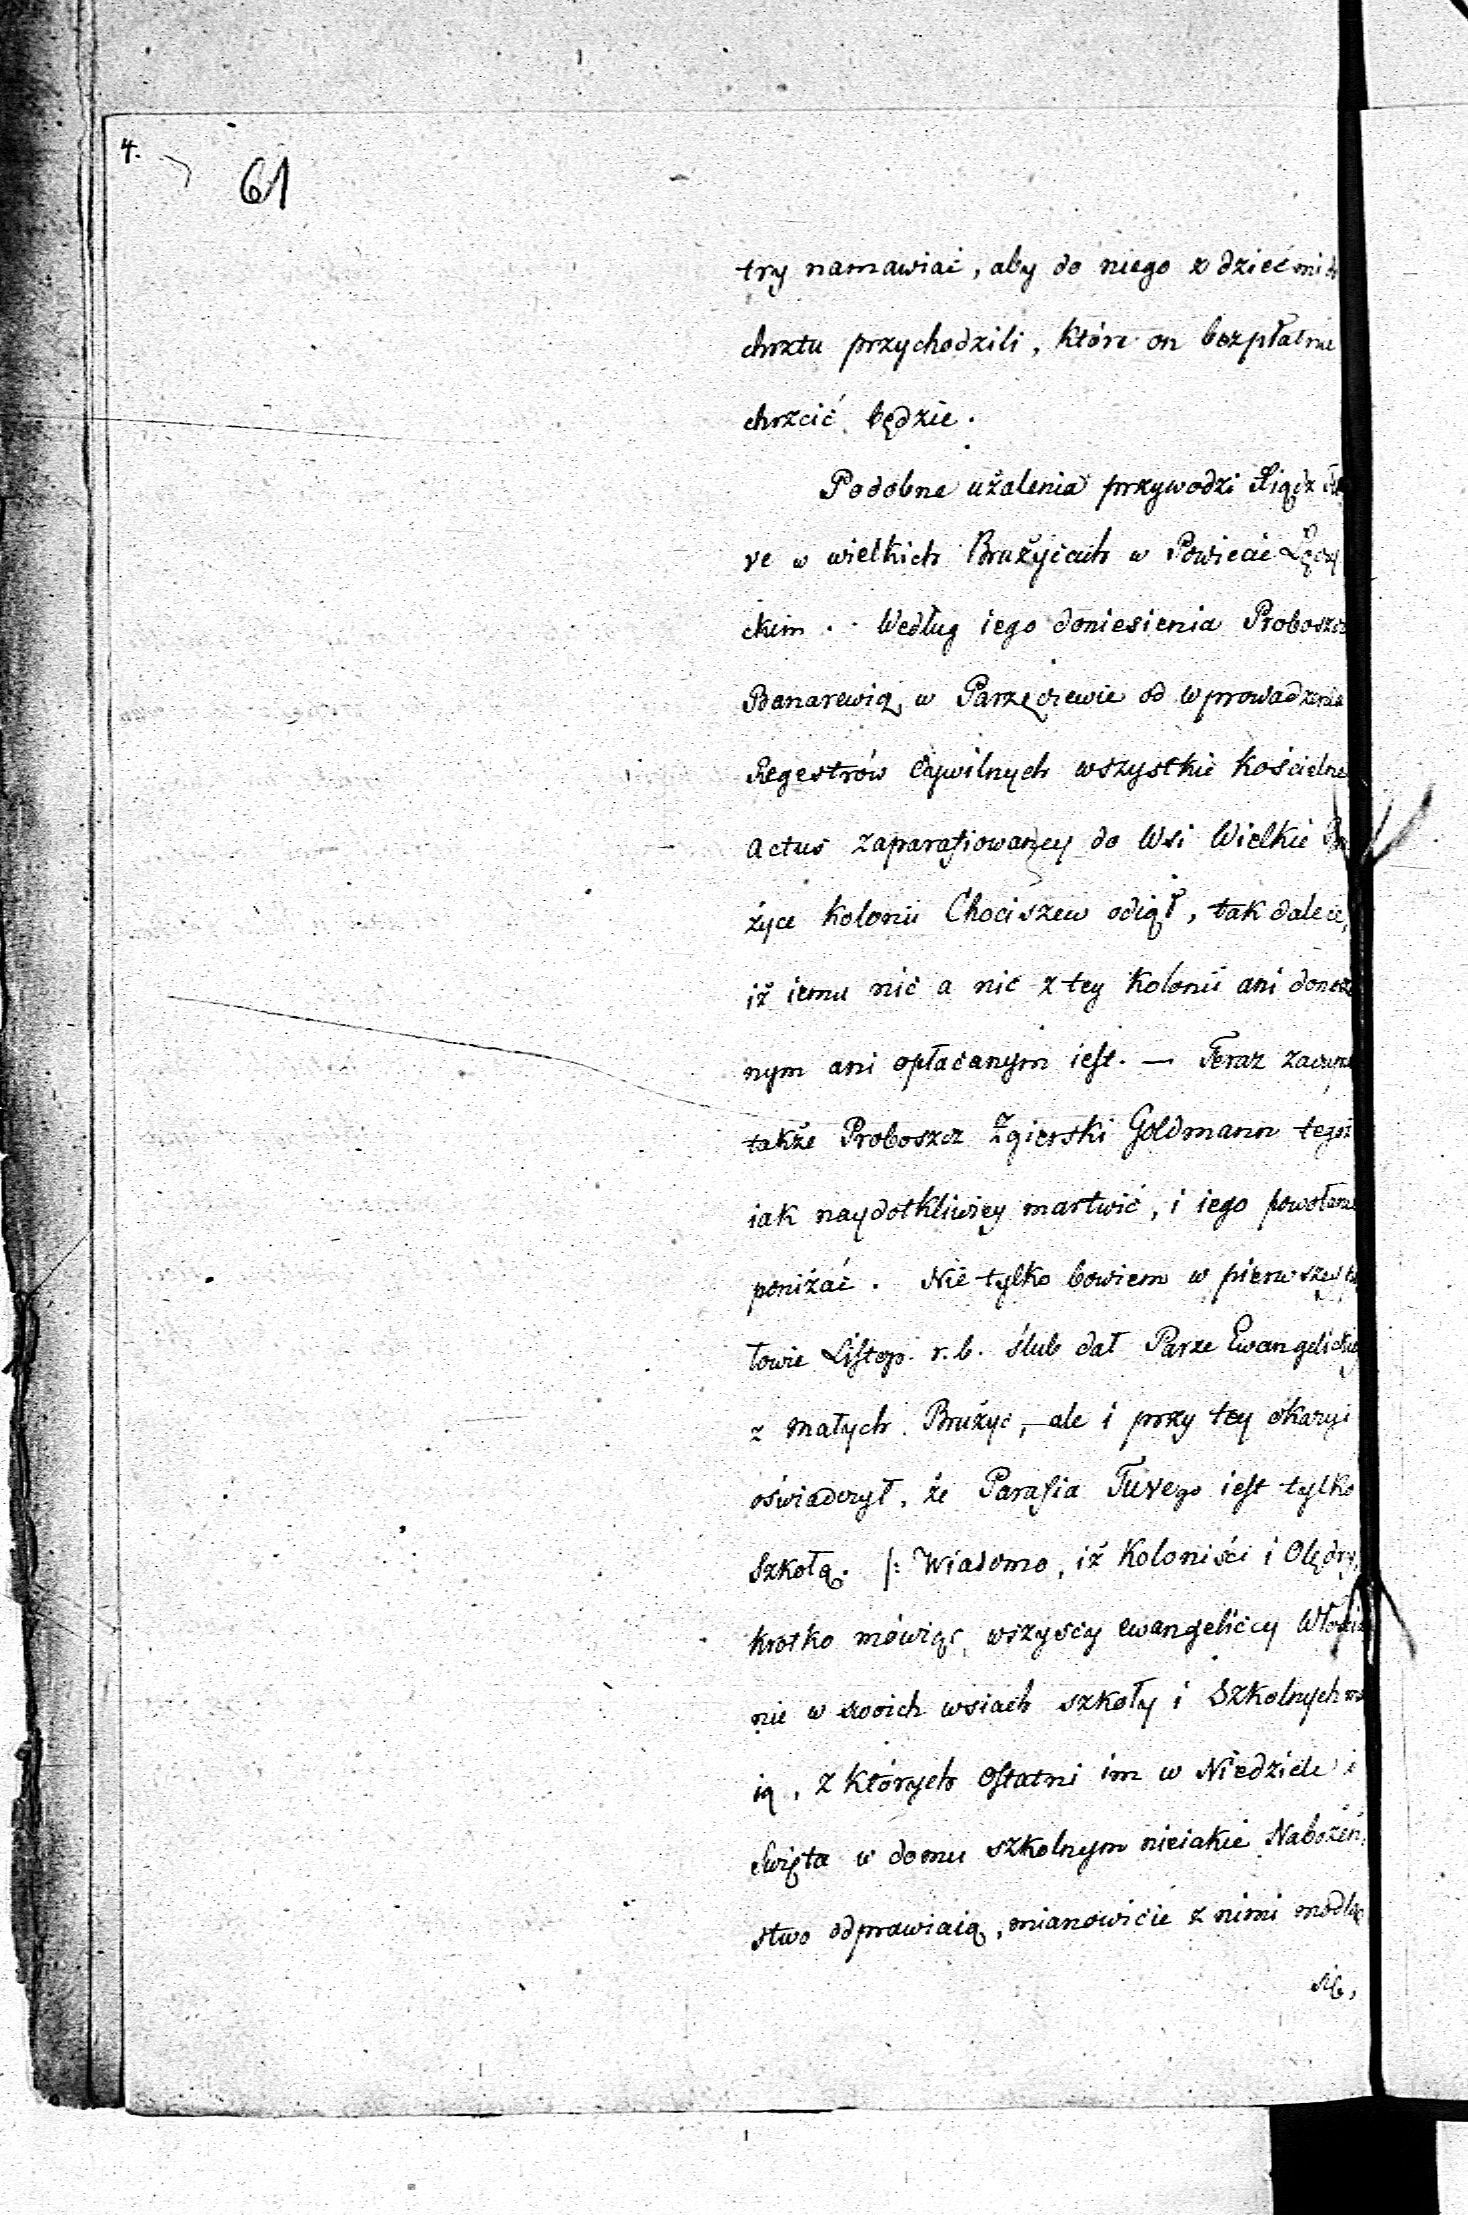 4.
61
try namawiać, aby do niego z dziećmi
chrztu przychodzili, które on bezpłatnie
chrzcić będzie.
Podobne użalenia przywodzi Xiądz
ve w wielkich Brużycach w Powiecie Łęczy
ckim. Według iego doniesienia Proboszcz
w Parzęczewie od wprowadzenia
Regestrów Cywilnych wszystkie Kościelne
Actus zaparafiowaney do Wsi Wielkie Bru
życe Kolonii Chociszew odiął, tak dalece,
iż iemu nic a nic z tey Kolonii ani donoszo
nym ani opłacanym iest. — Teraz zaczyna
także Proboszcz Zgierski Goldmann tegoż
iak naydotkliwiey martwić, i iego powołanie
poniżać. Nie tylko bowiem w pierwszey po
łowie Listop. r. b. ślub dał Parze Ewangelickiey
z Małych Brużyc, ale i przy tey okazyi
oświadczył, że Parafia Tuvego iest tylko
Szkołą. /: Wiadomo, iż Koloniści i Olędry,
krotko mówiąc, wszyscy ewangeliccy Włościa
nie w swoich wsiach szkoły i Szkolnych ma
ią, z których Ostatni im w Niedziele i
Święta w domu szkolnym nieiakie Nabożeń,
stwo odprawiaią, mianowicie z nimi modlą
się,